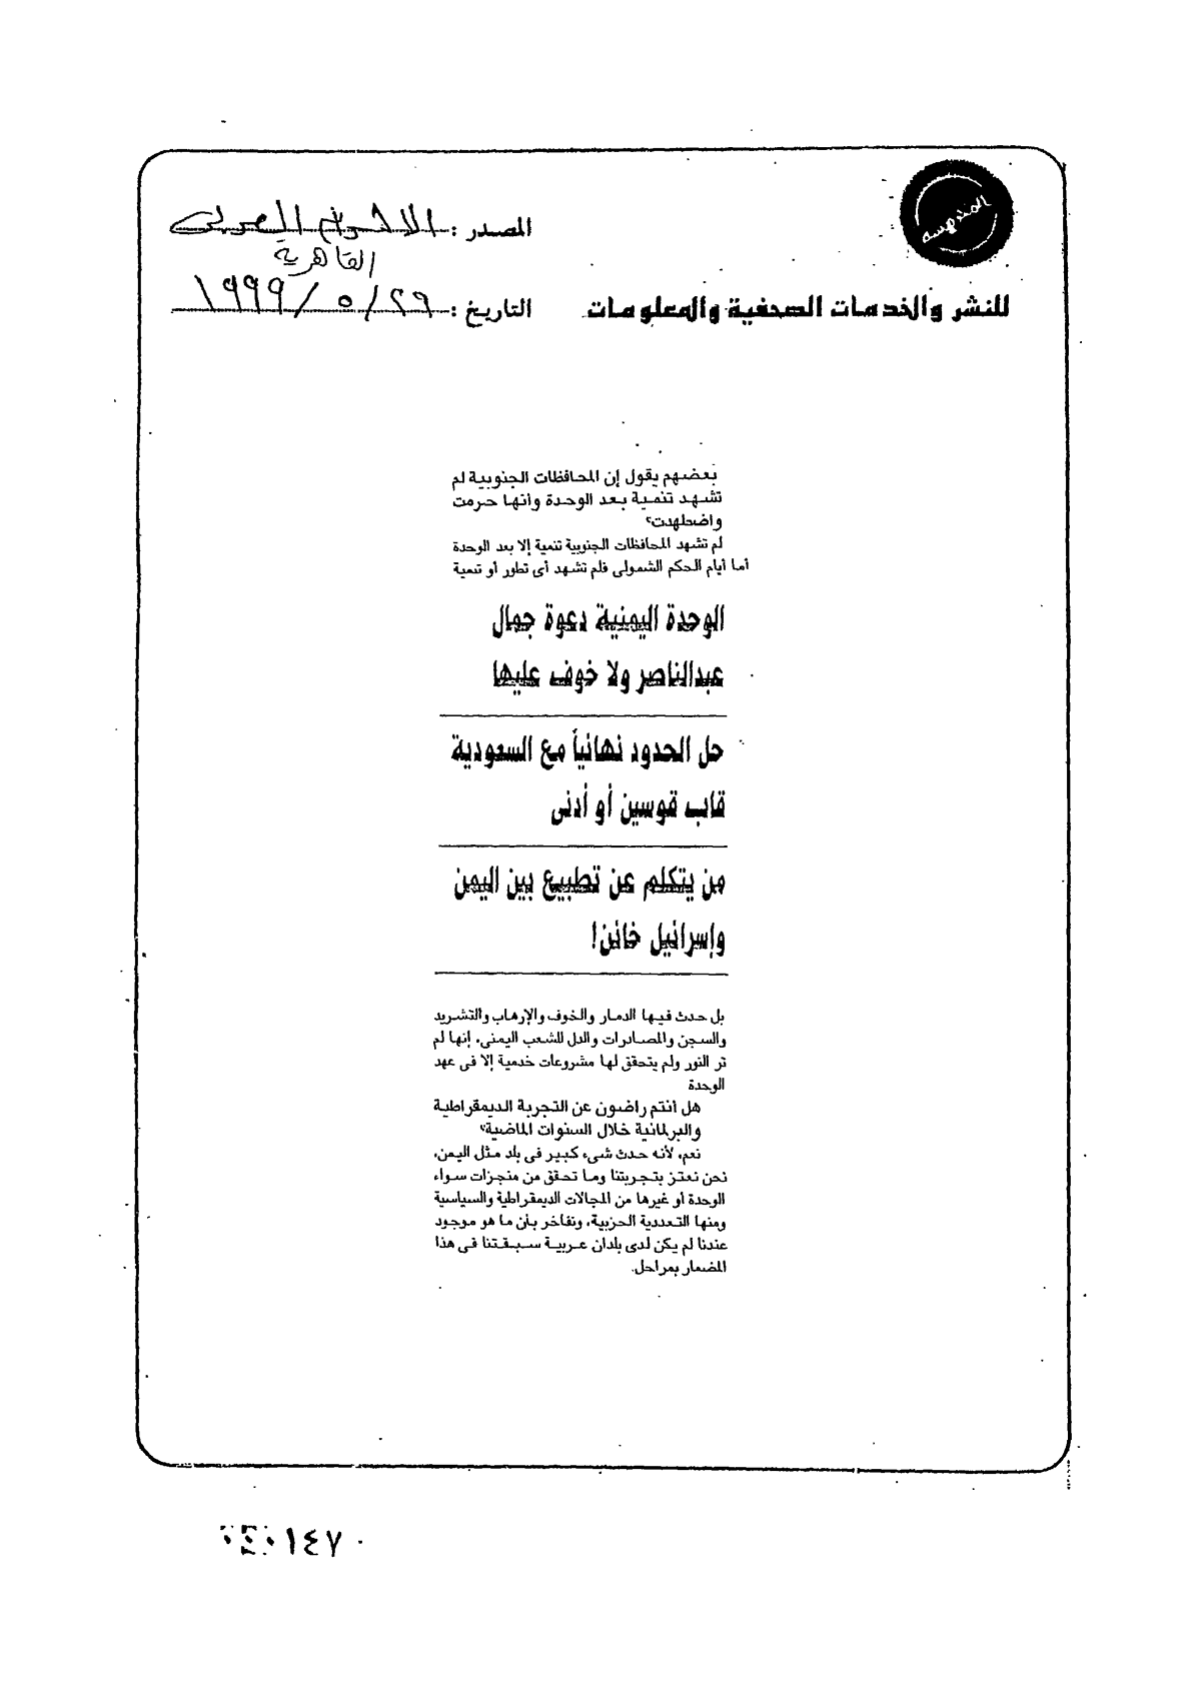 المصدر : الاهرام العربى
القاهرية
التاريخ : ٢٩ / ٥ / ١٩٩٩
للنشر والخدمات الصحفية والمعلومات
بعضهم يقول إن المحافظات الجنوبية لم
تشهد تنمية بعد الوحدة وانها حرمت
واضطهدت؟
لم تشهد المحافظات الجنوبية تنمية إلا بعد الوحدة
أما أيام الحكم الشمولى فلم تشهد أى تطور أو تنمية
الوحدة اليمنية دعوة جمال
عبدالناصر ولا خوف عليها
حل الحدود نهائياً مع السعودية
قاب قوسين أو أدنى
من يتكلم عن تطبيع بين اليمن
وإسرائيل خائن!
بل حدث فيها الدمار والخوف والإرهاب والتشريد
والسجن والمصادرات والذل للشعب اليمنى، إنها لم
تر النور ولم يتحقق لها مشروعات خدمية إلا فى عهد
الوحدة
هل انتم راضون عن التجربة الديمقراطية
والبرلمانية خلال السنوات الماضية؟
نعم، لأنه حدث شىء كبير فى بلد مثل اليمن،
نحن نعتز بتجربتنا وما تحقق من منجزات سواء
الوحدة أو غيرها من المجالات الديمقراطية والسياسية
ومنها التعددية الحزبية، ونفاخر بأن ما هو موجود
عندنا لم يكن لدى بلدان عربية سبقتنا فى هذا
المضمار بمراحل.